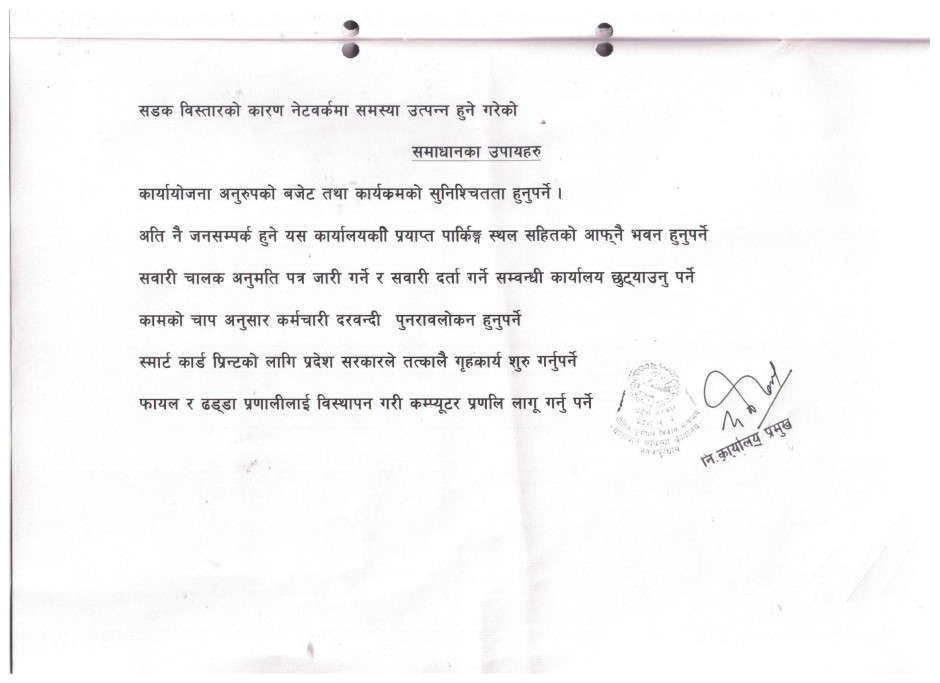 सडक विस्तारको कारण नेटवर्कमा समस्या उत्पन्न हुने गरेको
समाधानका उपायहरु
कार्यायोजना अनुरुपको बजेट तथा कार्यक्रमको सुनिश्चितता हुनुपर्ने ।
अति नै जनसम्पर्क हुने यस कार्यालयकाी प्रयाप्त पार्किङ्ग स्थल सहितको आफ्नै भवन हुनुपर्ने
सवारी चालक अनुमति पत्र जारी गर्ने र सवारी दर्ता गर्ने सम्वन्धी कार्यालय छुट्याउनु पर्ने
कामको चाप अनुसार कर्मचारी दरवन्दी पुनरावलोकन हुनुपर्ने
स्मार्ट कार्ड प्रिन्टको लागि प्रदेश सरकारले तत्कालै गृहकार्य शुरु गर्नुपर्ने
फायल र ढड्डा प्रणालीलाई विस्थापन गरी कम्प्यूटर प्रणलि लागू गर्नु पर्ने
प्रदेश सरकार
जनकपुरधाम
नि.कार्यालय प्रमुख